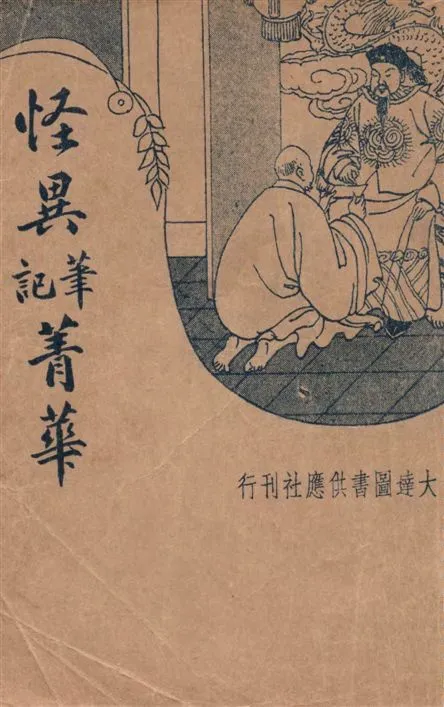 怪異筆記菁華
大達圖書供應社刊行